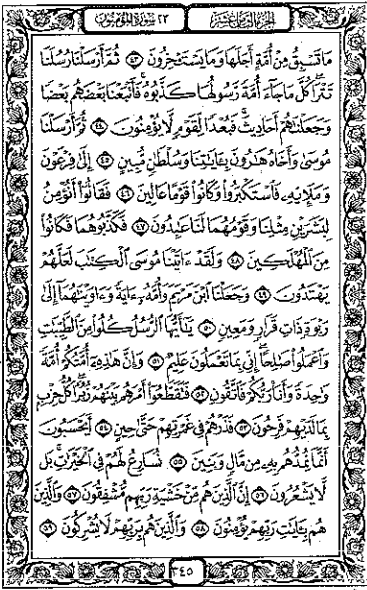 الجزء الثامن عشر ٢٣ سورة المؤمنون
مَا تَسْبِقُ مِنْ أُمَّةٍ أَجَلَهَا وَمَا يَسْتَـْٔخِرُونَ ٤٣ ثُمَّ أَرْسَلْنَا رُسُلَنَا
تَتْرَا كُلَّ مَا جَآءَ أُمَّةً رَّسُولُهَا كَذَّبُوهُ فَأَتْبَعْنَا بَعْضَهُم بَعْضًا
وَجَعَلْنَٰهُمْ أَحَادِيثَ فَبُعْدًا لِّقَوْمٍ لَّا يُؤْمِنُونَ ٤٤ ثُمَّ أَرْسَلْنَا
مُوسَىٰ وَأَخَاهُ هَٰرُونَ بِـَٔايَٰتِنَا وَسُلْطَٰنٍ مُّبِينٍ ٤٥ إِلَىٰ فِرْعَوْنَ
وَمَلَإِيْهِۦ فَٱسْتَكْبَرُوا۟ وَكَانُوا۟ قَوْمًا عَالِينَ ٤٦ فَقَالُوٓا۟ أَنُؤْمِنُ
لِبَشَرَيْنِ مِثْلِنَا وَقَوْمُهُمَا لَنَا عَٰبِدُونَ ٤٧ فَكَذَّبُوهُمَا فَكَانُوا۟
مِنَ ٱلْمُهْلَكِينَ ٤٨ وَلَقَدْ ءَاتَيْنَا مُوسَى ٱلْكِتَٰبَ لَعَلَّهُمْ
يَهْتَدُونَ ٤٩ وَجَعَلْنَا ٱبْنَ مَرْيَمَ وَأُمَّهُۥٓ ءَايَةً وَءَاوَيْنَٰهُمَآ إِلَىٰ
رَبْوَةٍ ذَاتِ قَرَارٍ وَمَعِينٍ ٥٠ يَٰٓأَيُّهَا ٱلرُّسُلُ كُلُوا۟ مِنَ ٱلطَّيِّبَٰتِ
وَٱعْمَلُوا۟ صَٰلِحًا إِنِّى بِمَا تَعْمَلُونَ عَلِيمٌ ٥١ وَإِنَّ هَٰذِهِۦٓ أُمَّتُكُمْ أُمَّةً
وَٰحِدَةً وَأَنَا۠ رَبُّكُمْ فَٱتَّقُونِ ٥٢ فَتَقَطَّعُوٓا۟ أَمْرَهُم بَيْنَهُمْ زُبُرًا كُلُّ حِزْبٍۭ
بِمَا لَدَيْهِمْ فَرِحُونَ ٥٣ فَذَرْهُمْ فِى غَمْرَتِهِمْ حَتَّىٰ حِينٍ ٥٤ أَيَحْسَبُونَ
أَنَّمَا نُمِدُّهُم بِهِۦ مِن مَّالٍ وَبَنِينَ ٥٥ نُسَارِعُ لَهُمْ فِى ٱلْخَيْرَٰتِ بَل
لَّا يَشْعُرُونَ ٥٦ إِنَّ ٱلَّذِينَ هُم مِّنْ خَشْيَةِ رَبِّهِم مُّشْفِقُونَ ٥٧ وَٱلَّذِينَ
هُم بِـَٔايَٰتِ رَبِّهِمْ يُؤْمِنُونَ ٥٨ وَٱلَّذِينَ هُم بِرَبِّهِمْ لَا يُشْرِكُونَ ٥٩
٣٤٥